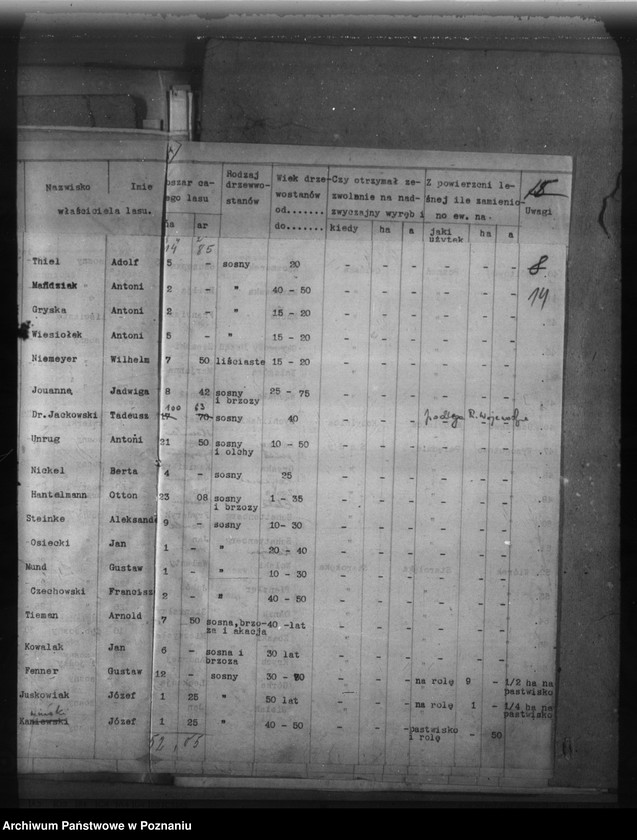 Nazwisko Imie bszar ca- Rodzaj Wiek drze- Czy otrzymał ze- Z powierzchni le- 15
ego lasu drzewo- wostanów zwolenie na nad- śnej ile zamienio-
właściciela lasu. stanów od....... zwyczajny wyrób i no ew. na. Uwagi
ha ar do....... kiedy ha a jaki użytek ha a
14 85
Thiel Adolf 5 - sosny 20 - - - - - - 8
Mańdziak Antoni 2 - " 40 - 50 - - - - - - 14
Gryska Antoni 2 - " 15 - 20 - - - - - -
Wiesiołek Antoni 5 - " 15 - 20 - - - - - -
Niemeyer Wilhelm 7 50 liściaste 15 - 20 - - - - - -
Jouanne Jadwiga 8 42 sosny 25 - 75 - - - - - -
i brzozy
100 63
Dr.Jackowski Tadeusz 17 70 sosny 40 - - -
Unrug Antoni 21 50 sosny 10 - 50 - - - - - -
i olchy
Nickel Berta 4 - sosny 25 - - - - - -
Hantelmann Otton 23 08 sosny 1 - 35 - - - - - -
i brzozy
Steinke Aleksand 9 - sosny 10- 30 - - - - - -
Osiecki Jan 1 - " 20 - 40 - - - - - -
Mund Gustaw 1 - " 10 - 30 - - - - - -
Czechowski Francisz 2 - " 40 - 50 - - - - - -
Tieman Arnold 7 50 sosna,brzo- 40 -lat - - - - - -
za i akacja
Kowalak Jan 6 - sosna i 30 lat - - - - - -
brzoza
Fenner Gustaw 12 - sosny 30 - 70 - - - na rolę 9 - 1/2 ha na
pastwisko
Juskowiak Józef 1 25 " 50 lat - - - na rolę 1 - 1/4 ha na
pastwisko
Kaniewski Józef 1 25 " 40 - 50 - - - pastwisko - 50
i rolę
52,85
Archiwum Państwowe w Poznaniu